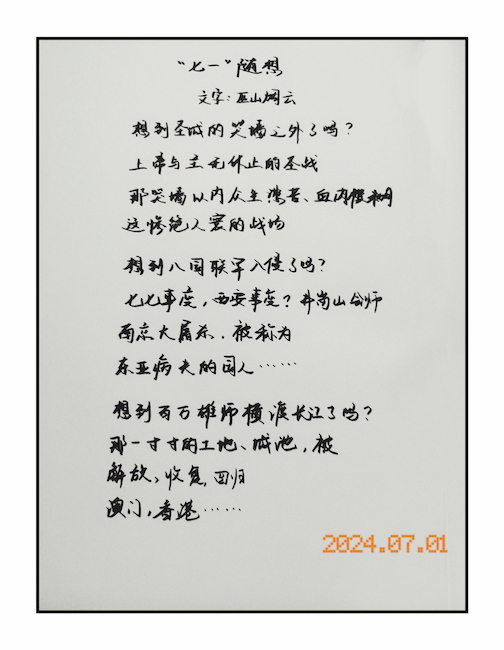 “七一”随想
文字：巫山烟云
想到圣城的哭墙之外了吗？
上帝与主无休止的圣战
那哭墙以内众生鸿苦、血肉模糊
这惨绝人寰的战场
想到八国联军入侵了吗？
七七事变，西安事变？井岗山会师
南京大屠杀．被称为
东亚病夫的国人……
想到百万雄师横渡长江了吗？
那一寸寸的土地、城池，被
解放、收复，回归
澳门，香港……
2024.07.01